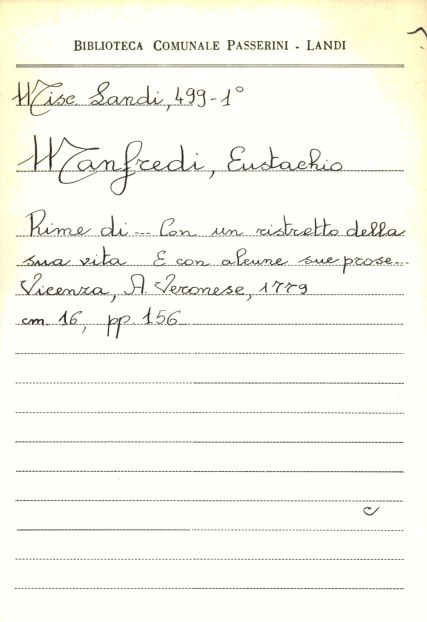 BIBLIOTECA COMUNALE PASSERINI - LANDI
Misc. Landi, 499-1°
Manfredi, Eustachio
Rime di ... Con un ristretto della
sua vita E con alcune sue prose...
Vicenza, A. Veronese, 1779
cm. 16, pp. 156
c